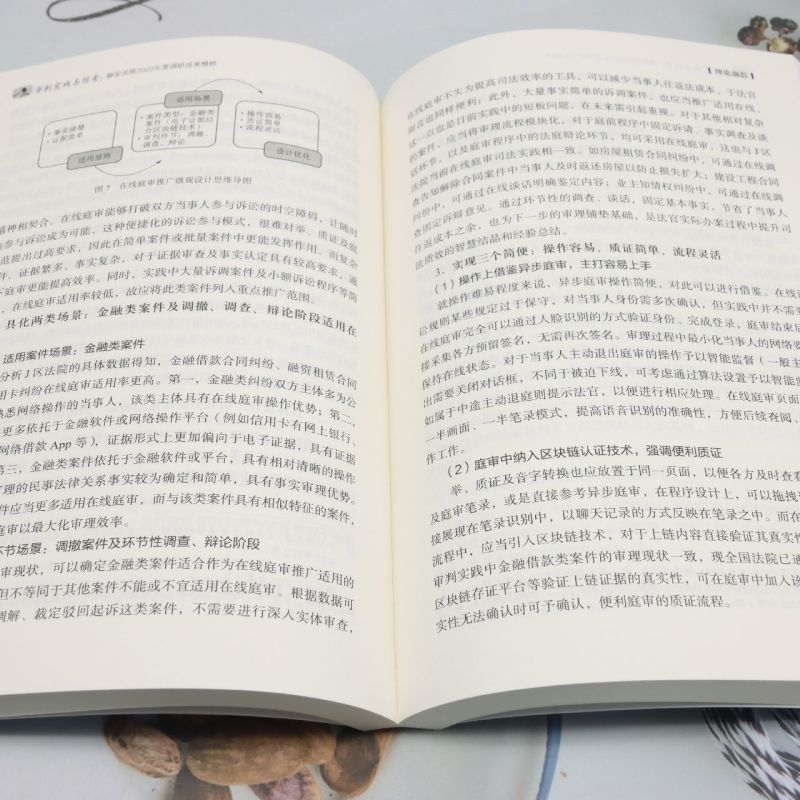 审判实践与探索：静安法院2023年度调研成果精粹
事实清楚
证据简单
适用原则
适用场景
案件类型：金融类
案件（电子证据结
合区块链技术）
审判环节：调撤、
调查、辩论
操作容易
质证简单
流程灵活
设计优化
图7 在线庭审推广微观设计思维导图
精神相契合。在线庭审能够打破双方当事人参与诉讼的时空障碍，让随时
参与诉讼成为可能，这种便捷化的诉讼参与模式，很难对举、质证及庭
范提出过高要求，因此在简单案件或批量案件中更能发挥作用。而复杂
件，证据繁多，事实复杂，对于证据审查及事实认定具有较高要求，通
庭审更能提高效率。同时，实践中大量诉调案件及小额诉讼程序等简
，在线庭审适用率较低，故应将此类案件列入重点推广范围。
具化两类场景：金融类案件及调撤、调查、辩论阶段适用在
适用案件场景：金融类案件
分析J区法院的具体数据得知，金融借款合同纠纷、融资租赁合同
用卡纠纷在线庭审适用率更高。第一，金融类纠纷双方主体多为公
熟悉网络操作的当事人，该类主体具有在线庭审操作优势；第二，
件更多依托于金融软件或网络操作平台（例如信用卡有网上银行、
网络借款App等），证据形式上更加偏向于电子证据，具有证据
第三，金融类案件依托于金融软件或平台，具有相对清晰的操作
审理的民事法律关系事实较为确定和简单，具有事实审理优势。
件应当更多适用在线庭审，而与该类案件具有相似特征的案件，
庭审以最大化审理效率。
环节场景：调撤案件及环节性调查、辩论阶段
审现状，可以确定金融类案件适合作为在线庭审推广适用的
但不等同于其他案件不能或不宜适用在线庭审。根据数据可
调解、裁定驳回起诉这类案件，不需要进行深入实体审查，
理论前沿
在线庭审不失为提高司法效率的工具，可以减少当事人往返法院成本、于法官
而言也同样便利；此外，大量事实简单的诉调案件，也应当推广适用在线，
这一点也是目前实践中的短板问题，在未来需引起重视。对于其他相对复杂
的案件，应当将审理流程模块化，对于庭前程序中固定诉请、事实调查及谈
话环节，以及庭审程序中的法庭辩论环节，均可采用在线庭审，这也与J区
法院当前在线庭审司法实践相一致。如房屋租赁合同纠纷中，可通过在线调
查告知解除合同案件中当事人及时返还房屋以防止损失扩大；建设工程合同
纠纷中，可通过在线谈话明确鉴定内容；业主知情权纠纷中，可通过在线调
查固定诉辩意见。通过环节性的调查、谈话，固定基本事实，节省了当事人
往返成本之余，也为下一步的审理铺垫基础，是法官实际办案过程中提升司
法质效的智慧结晶和经验总结。
3．实现三个简便：操作容易、质证简单、流程灵活
（1）操作上借鉴异步庭审，主打容易上手
就操作难易程度来说，异步庭审操作简便，对此可以进行借鉴。在线诉
讼规则某些规定过于保守，对当事人身份需多次确认，但实践中并不需要
在线庭审完全可以通过人脸识别的方式验证身份、完成登录，庭审结束后
接采集各方预留签名，无需再次签名。审理过程中最小化当事人的网络要
保持在线状态。对于当事人主动退出庭审的操作予以智能监督（一般主
出需要关闭对话框，不同于被迫下线，可考虑通过算法设置予以智能
如属于中途主动退庭则提示法官，以便进行相应处理。在线庭审页面
一半画面、一半笔录模式，提高语音识别的准确性，方便后续查阅、
作工作。
（2）庭审中纳入区块链认证技术，强调便利质证
举、质证及音字转换也应放置于同一页面，以便各方及时查看
及庭审笔录，或是直接参考异步庭审，在程序设计上，可以拖拽
接展现在笔录识别中，以聊天记录的方式反映在笔录之中。而在
流程中，应当引入区块链技术，对于上链内容直接验证其真实性
审判实践中金融借款类案件的审理现状一致，现全国法院已通
区块链存证平台等验证上链证据的真实性，可在庭审中加入该
实性无法确认时可予确认，便利庭审的质证流程。